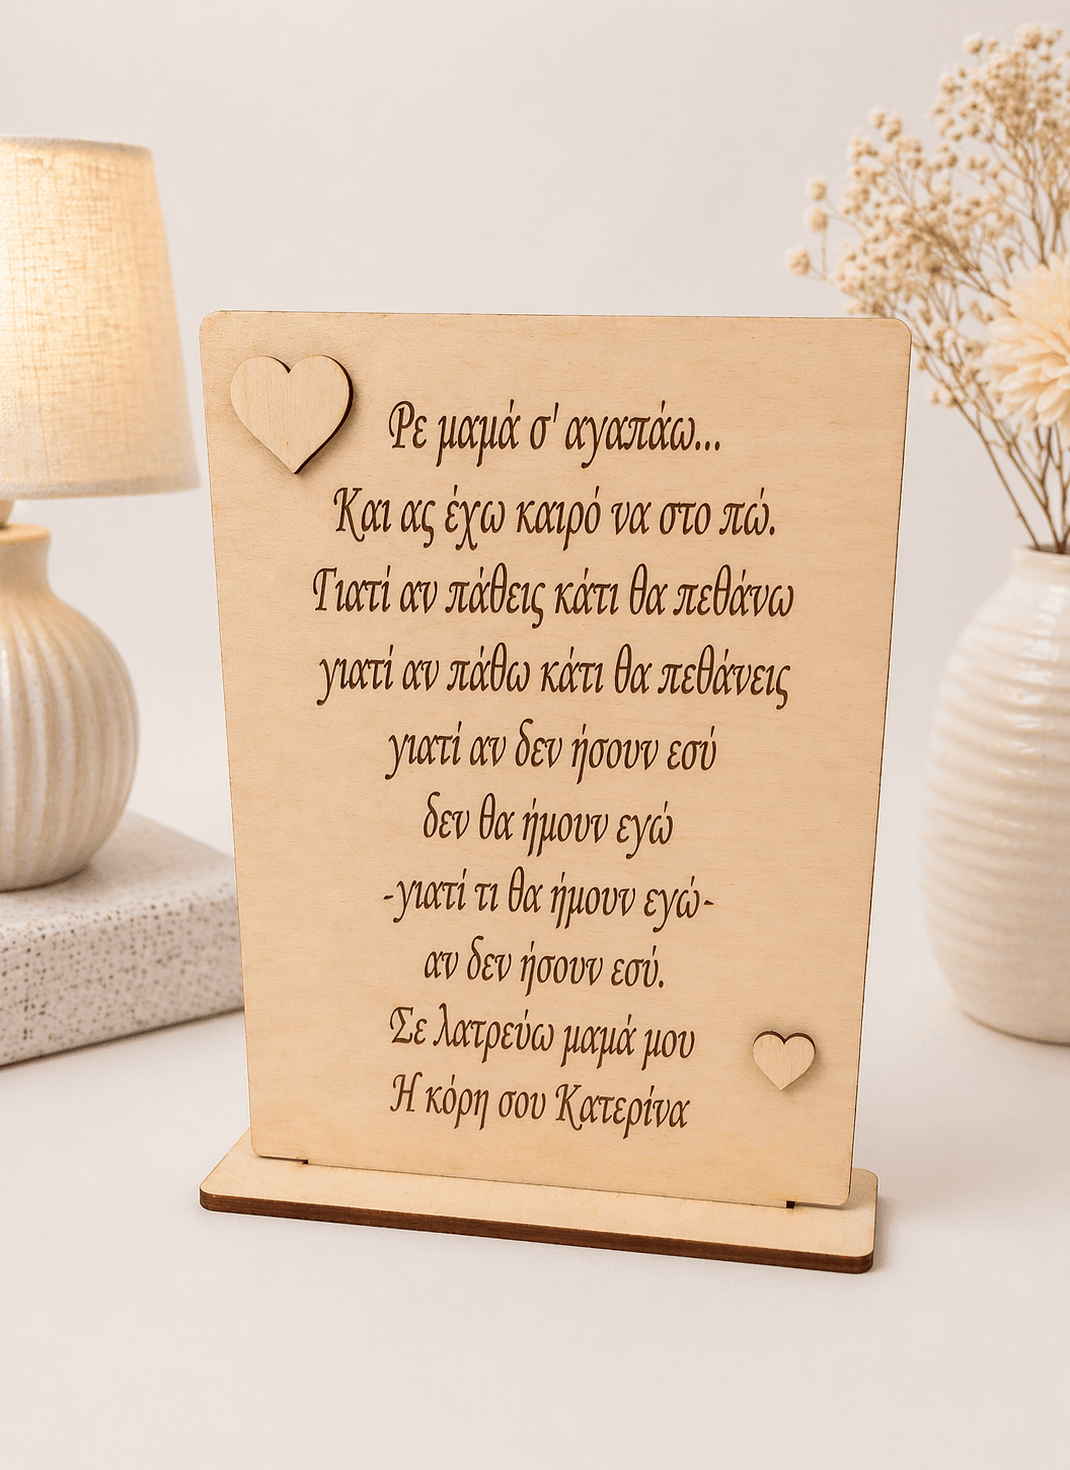 Ρε μαμά σ' αγαπάω...
Και ας έχω καιρό να στο πώ.
Γιατί αν πάθεις κάτι θα πεθάνω
γιατί αν πάθω κάτι θα πεθάνεις
γιατί αν δεν ήσουν εσύ
δεν θα ήμουν εγώ
-γιατί τι θα ήμουν εγώ-
αν δεν ήσουν εσύ.
Σε λατρεύω μαμά μου
Η κόρη σου Κατερίνα